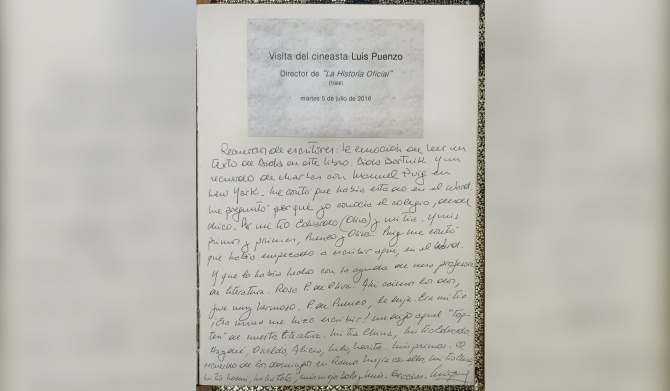 Visita del cineasta Luis Puenzo
Director de "La Historia Oficial"
(1986)
martes 5 de julio de 2016
Recuerdos de escritores: la emoción de leer un
texto de Aída en este libro. Aída Bortnik. Y un
recuerdo de charlas con Manuel Puig en
New York. Me contó que había estado en el Ward.
Me preguntó por qué yo conocía el colegio, desde
chico. Por mi tío Edwardo (Oliva) y mi tía. Y mis
primos y primas, Puenzo y Oliva. Puig me contó
que había empezado a escribir aquí, en el Ward.
Y que lo había hecho con la ayuda de una profesora
de literatura. Rosa P. de Oliva. Ahí caímos los dos,
fue muy hermoso. P. de Puenzo, le dije. Era mi tía
¡Ella me hizo escribir! me dijo aquel "top
ten" de nuestra literatura. Mi tía China, mi tío Edwardo
Haydée, Osvaldo, Alicia, mis primos. El
recuerdo de los domingos en Ramos Mejía con ellos, mi
mi mamá, mi viejo y Luis. Gracias.